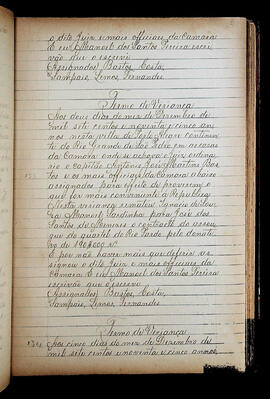 o dito Juiz e mais officiaes da Camara
E eu Manoel dos Santos Pereira escri-
vão que o escrevi
Assignados Bastos, Costa,
Sampaio, Lemos, Fernandes
Termo de Vereança
Aos dous dias do mez de Dezembro de
mil sete centos e noventa e cinco an-
nos nesta villa de Porto Alegre continen-
te do Rio Grande de São Pedro em as casas
da Camara onde se achava o Juiz ordina-
rio o Capitão Antonio José Martins Bas-
tos e os mais officiaes da Camara abaixo
assignados para effeito de proverem o
que for mais conveniente á Republica
Nesta vereança rematou Ignacio de Sou-
za Manoel Sardinha para José dos
Santos de o contracto do açou-
gue do quartel do Rio Pardo pelo donati-
vo de
E por não haver mais que deferir as-
signou o dito Juiz e mais officiaes da
Camara E eu Manoel dos Santos Pereira
escrivão que o escrevi
Assignados Bastos, Costa,
Sampaio, Lemos, Fernandes
Termo de Vereança
Aos cinco dias do mez de Dezembro de
mil sete centos e noventa e cinco annos